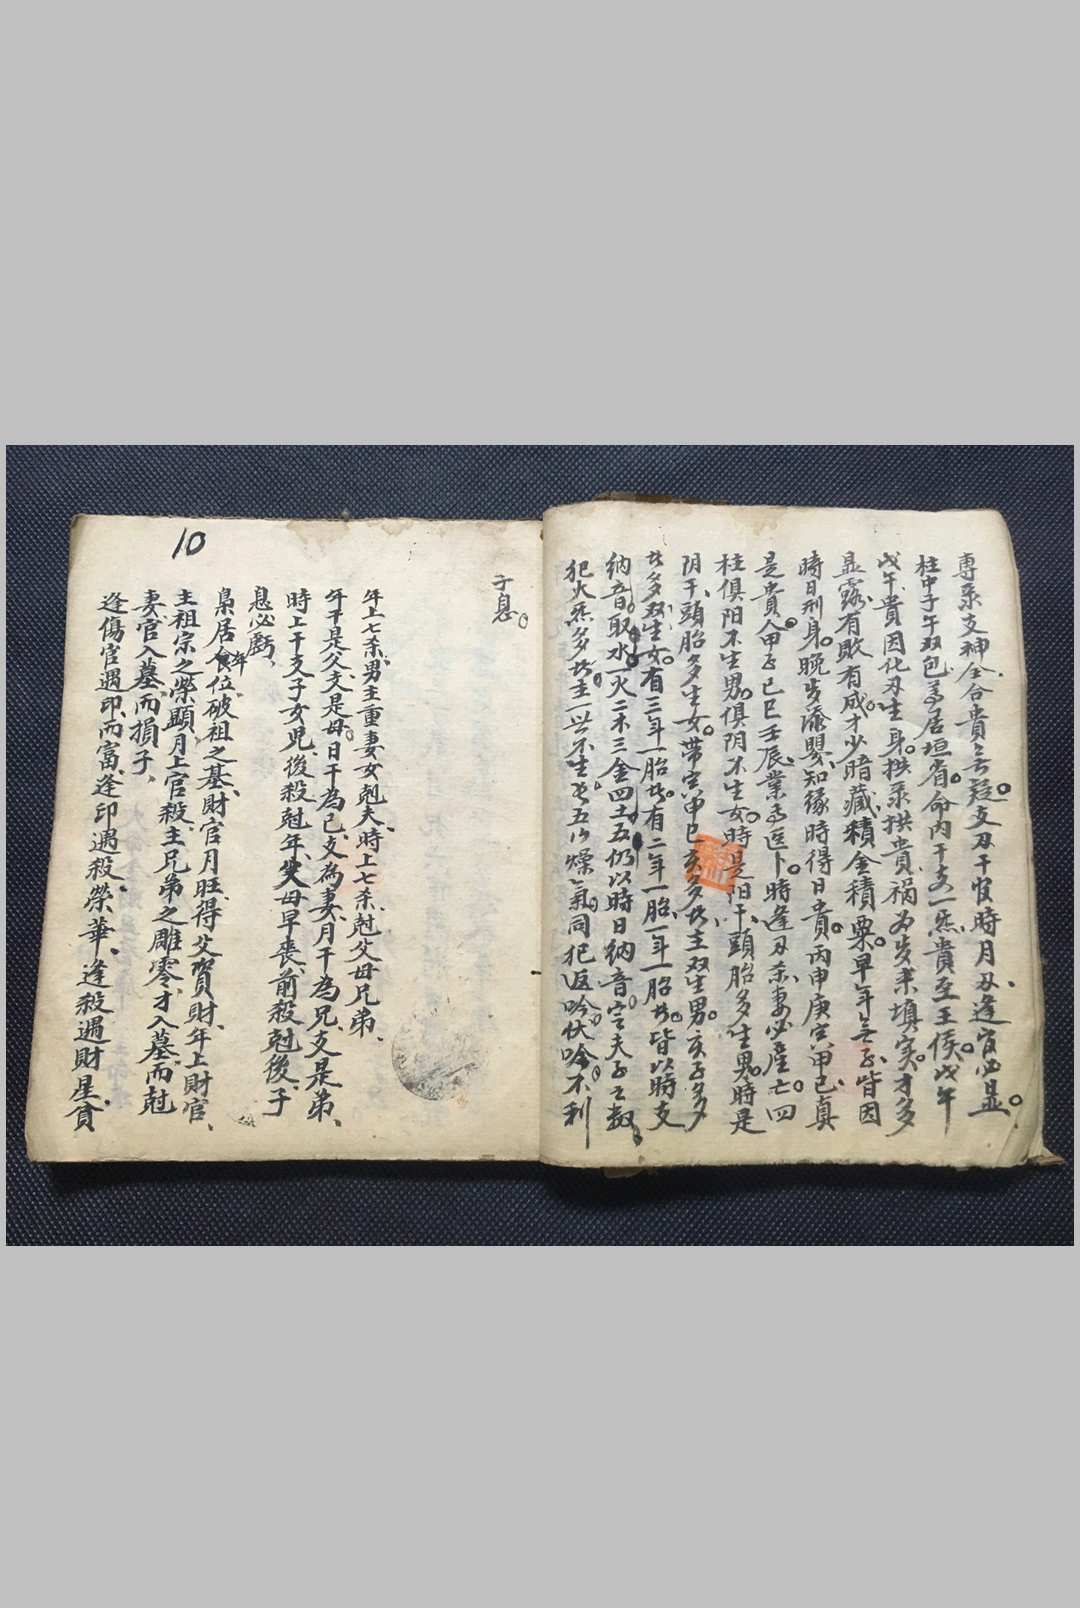 專系支神全合貴無疑支刃干官時月刃逢官必显
柱中子午双包為居垣省命內干支一炁貴至王侯戊午
戊午貴因化刃生身拱系拱貴禍為歲来填实才多
显露有敗有成才少暗藏積金積粟早年無子皆因
時日刑身晚步添嬰知緣時得日貴丙申庚寅甲巳真
是貴人甲子己巳壬辰業為医卜時逢刃杀妻必產亡四
柱俱阳不生男俱阴不生女時是阳干頭胎多生男時是
阴干頭胎多生女带寅申巳亥多者主双生男亥子多
者多双生女有三年一胎者有二年一胎一年一胎者皆以時支
納音取水一火二木三金四土五仍以時日納音定夫子之数
犯火炁多者主一世不生者五行燥氣同犯返吟伏吟不利
子息
年上七杀男主重妻女剋夫時上七杀尅父母兄弟
年干是父支是母日干為己支為妻月干為兄支是弟
時上干支子女児後殺尅年父母早喪前殺尅後子
息必虧
梟居食年位破祖之基財官月旺得父資財年上財官
主祖宗之榮顯月上官殺主兄弟之雕零才入墓而尅
妻官入墓而損子
逢傷官遇印而富逢印遇殺榮華逢殺遇財星貧
10